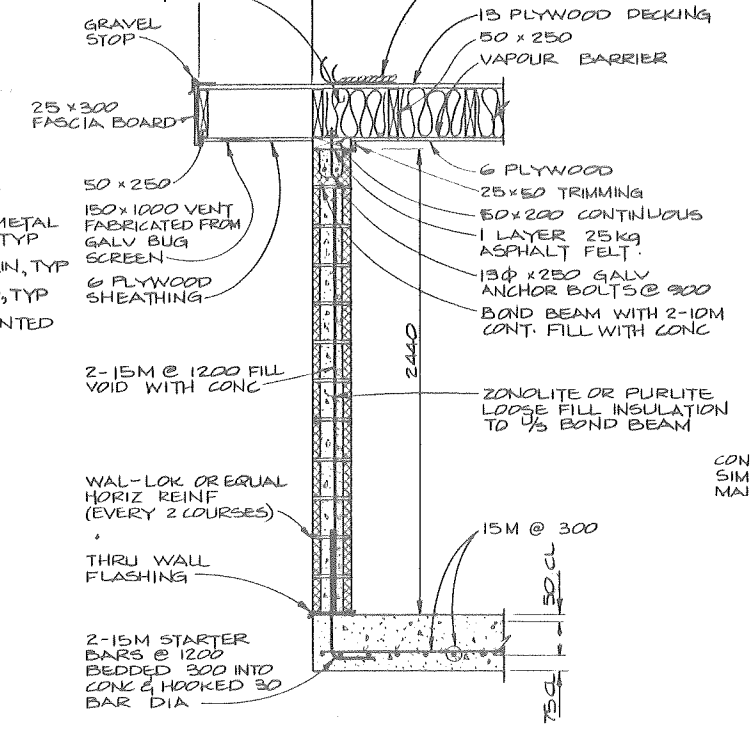 GRAVEL
STOP
25 x 300
FASCIA BOARD
50 x 250
150 x 1000 VENT
FABRICATED FROM
GALV BUG
SCREEN
6 PLYWOOD
SHEATHING
METAL
TYP
IN, TYP
, TYP
NTED
2-15M @ 1200 FILL
VOID WITH CONC
WAL-LOK OR EQUAL
HORIZ REINF
(EVERY 2 COURSES)
THRU WALL
FLASHING
2-15M STARTER
BARS @ 1200
BEDDED 300 INTO
CONC & HOOKED 30
BAR DIA
13 PLYWOOD DECKING
50 x 250
VAPOUR BARRIER
6 PLYWOOD
25 x 50 TRIMMING
50 x 200 CONTINUOUS
1 LAYER 25kg
ASPHALT FELT.
13Φ x 250 GALV
ANCHOR BOLTS @ 900
BOND BEAM WITH 2-10M
CONT. FILL WITH CONC
2440
ZONOLITE OR PURLITE
LOOSE FILL INSULATION
TO U/S BOND BEAM
CON
SIM
MAI
15M @ 300
50 CL
75 CL